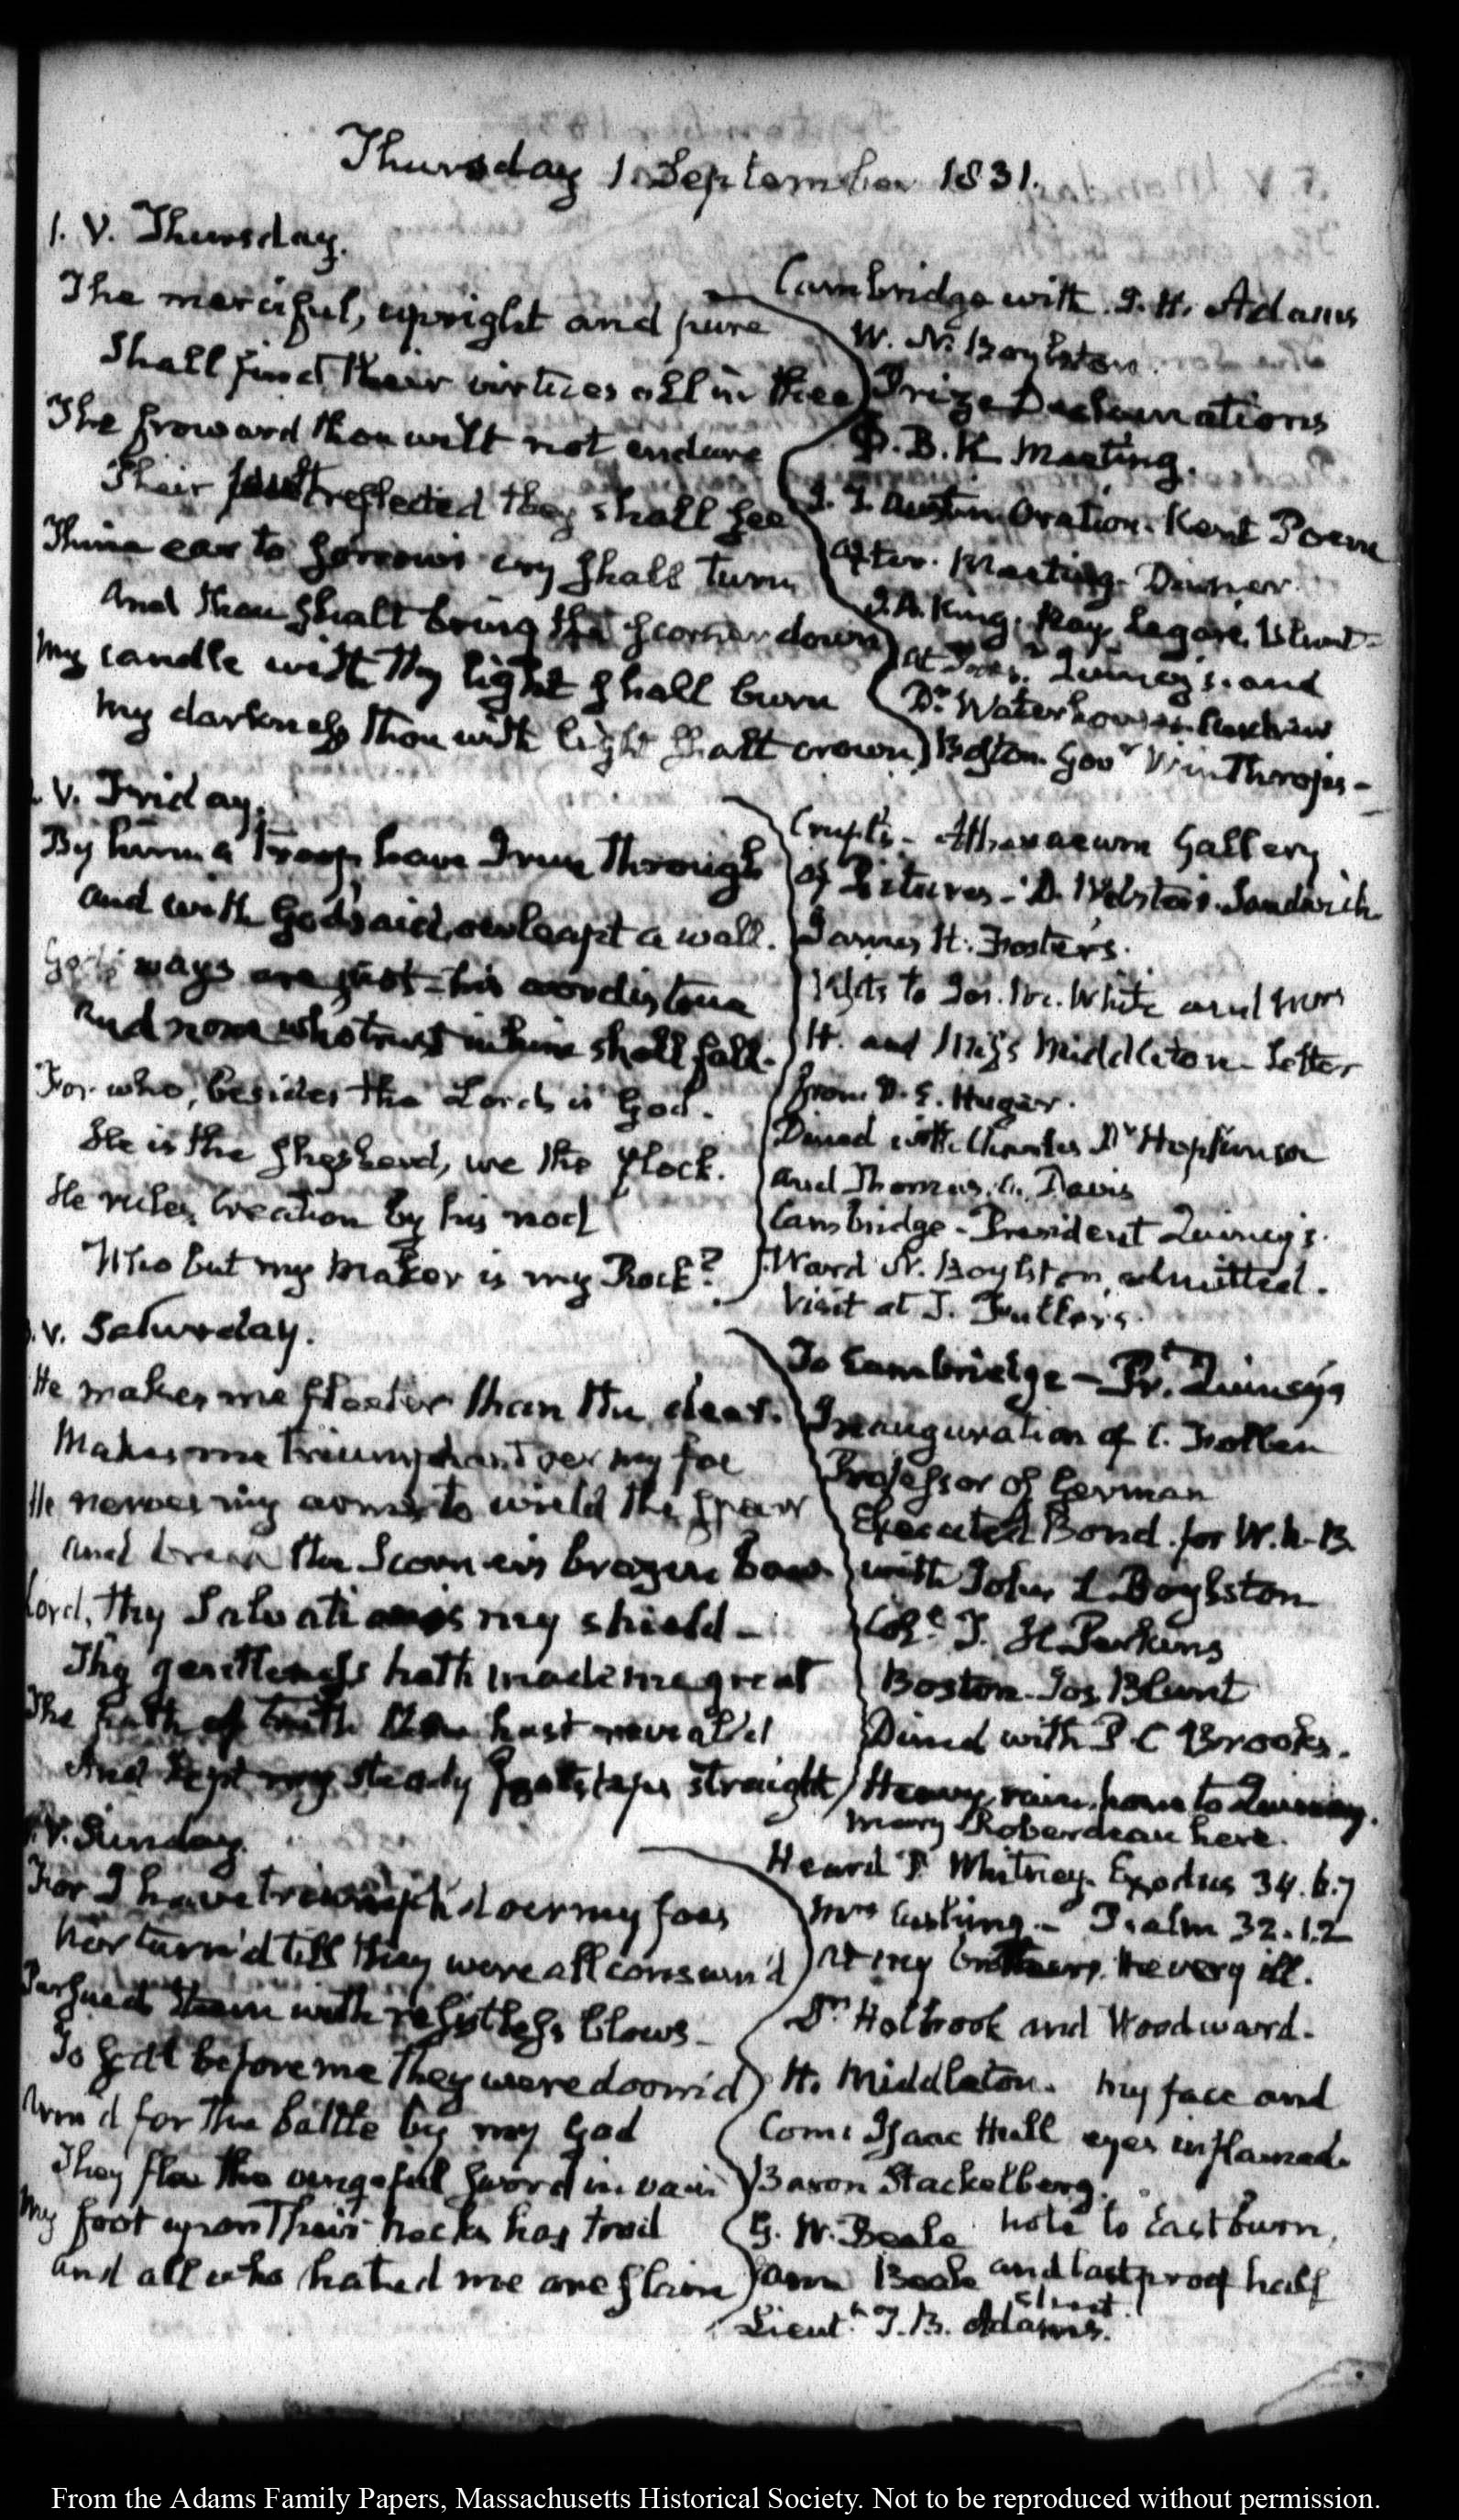 Thursday 1. September 1831.
1. V. Thursday.
The merciful, upright and pure
Shall find their virtues all in thee
The froward thou wilt not endure
Their fault reflected they shall see
Thine ear to sorrows cry shall turn
And thou shalt bring the scorner down
My candle with thy light shall burn
My darkness thou with light shalt crown
Cambridge with J. H. Adams
W. N. Boylston.
Prize Declamations
Φ. B. K. Meeting.
J. T. Austin Oration. Kent Poem
After. Meeting. Dinner.
J. A. King, Ray, Legare, Blunt-
at Quincy's. and
Dr. Waterhouse.
Boston Govr. Winthrop's-
V. Friday.
By him a troop have I run through
and with God's aid, oerleapt a wall.
God's ways are just - his word is true
And none who trust in him shall fall.
For who, besides the Lord is God.
He is the shepherd, we the flock.
He rules Creation by his nod
Who but my Maker is my Rock?
- Athenaeum Gallery
of Pictures - D. Webster. Sandwich
James H. Foster's.
Visits to Jos. White and Mrs
H. and Miss Middleton - Letter
from D. E. Huger.
Dined with Charles Dr. Hopkinson
and Thomas Davis
Cambridge - President Quincy's.
Ward N. Boylston, admitted.
Visit at T. Fuller's.
V. Saturday.
He makes me fleeter than the deer.
Makes me triumphant oer my foe
He nerves my arms to wield the spear
And break the Scorner's brazen bow.
Lord, thy Salvation is my shield -
Thy gentleness hath made me great
The path of truth thou hast reveal'd
And kept my steady footsteps straight
To Cambridge - Pr. Quincy's
Inauguration of C. Follen
Professor of German
Executed Bond for W. N. B.
with John L. Boylston
Coll. T. H. Perkins
Boston. Jos. Blunt
Dined with P C Brooks.
Heavy rain home to Quincy.
Mary Roberdeau here.
V. Sunday.
For I have triumph'd oer my foes
Nor turn'd till they were all consum'd
Pursued them with resistless blows -
To fall before me they were doom'd
Arm'd for the battle by my God
They flee the vengeful sword in vain
My foot upon their necks has trod
And all who hated me are slain
Heard P. Whitney. Exodus 34. 6.7
Mrs Cushing. - Psalm 32. 1.2
At my brothers. He very ill.
Drs Holbrook and Woodward.
H. Middleton. My face and
Com: Isaac Hull eyes inflamed.
Baron Stackelberg.
G. W. Beale Note to Eastburn,
Ann Beale and last proof half
sheet.
Lieut. T. B. Adams.
From the Adams Family Papers, Massachusetts Historical Society. Not to be reproduced without permission.